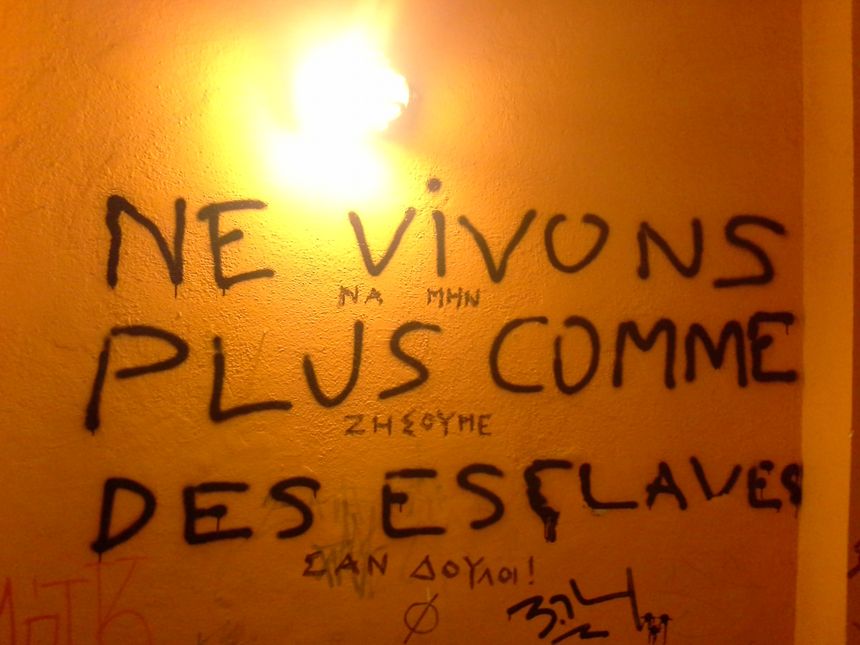 NE ViVONS
ΝΑ ΜΗΝ
PLUS COMME
ΖΗΣΟΥΜΕ
DES ESCLAVES
ΣΑΝ ΔΟΥΛΟΙ!